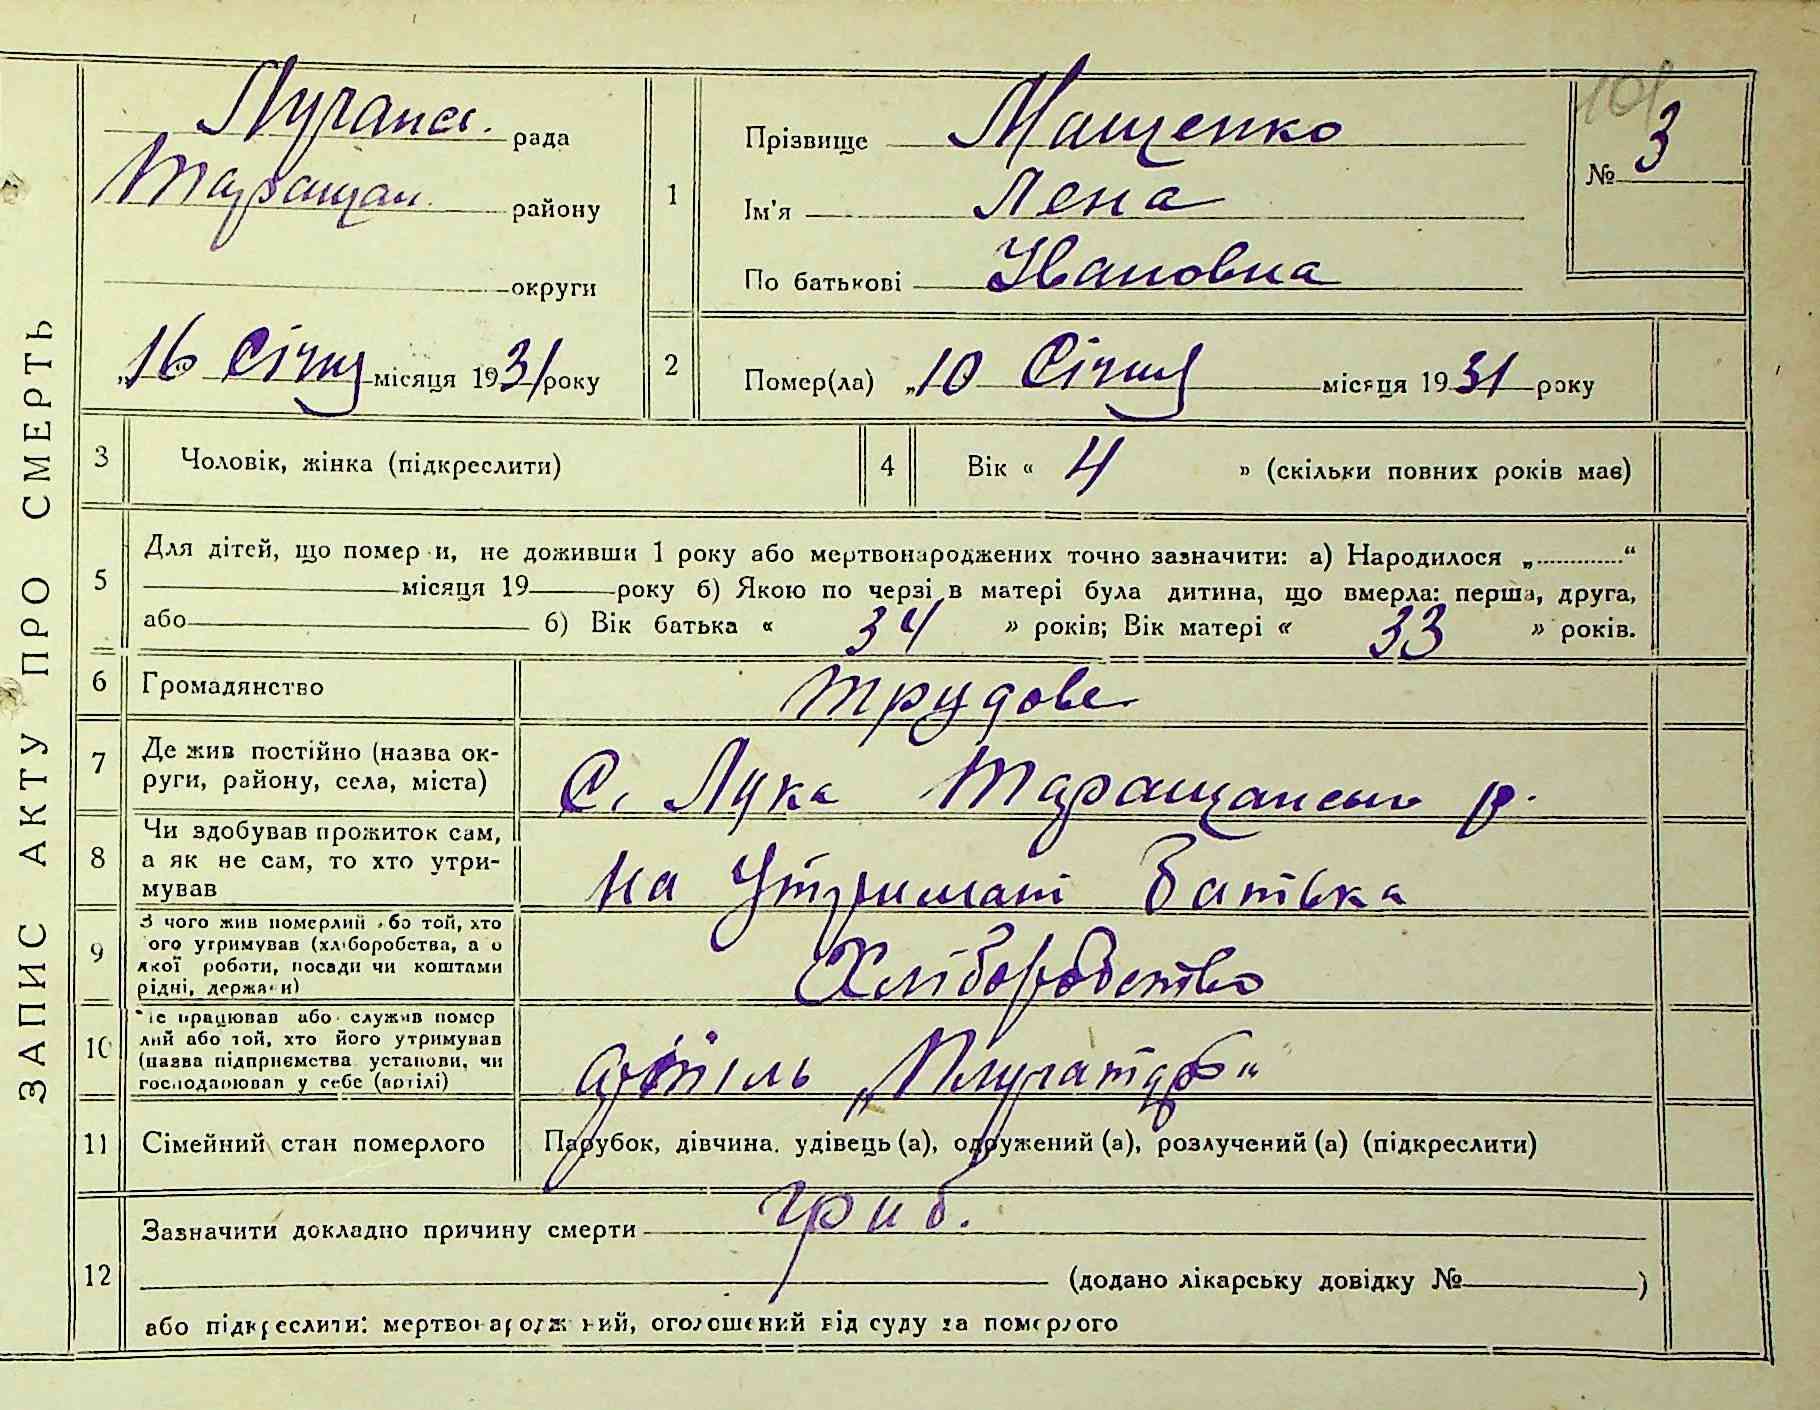 ЗАПИС АКТУ ПРО СМЕРТЬ
Лучанс. рада
Таращан. району
округи
„16 Січня місяця 1931 року
1
Прізвище Мащенко
Ім'я Лєна
По батькові Івановна
101
№ 3
2
Помер(ла) „10 Січня місяця 1931 року
3 Чоловік, жінка (підкреслити)
4 Вік « 4 » (скільки повних років має)
5
Для дітей, що помер и, не доживши 1 року або мертвонароджених точно зазначити: а) Народилося „............“
місяця 19 року б) Якою по черзі в матері була дитина, що вмерла: перша, друга,
або б) Вік батька « 34 » років; Вік матері « 33 » років.
6 Громадянство Трудове
7
Де жив постійно (назва ок-
руги, району, села, міста)
С. Лука Таращанськ р.
8
Чи здобував прожиток сам,
а як не сам, то хто утри-
мував
на Утримані Батька
9
З чого жив померлий або той, хто
ого утримував (хліборобства, а о
якої роботи, посади чи коштами
рідні, держа и)
Хліборобство
10
е працював або служив помер
лий або той, хто його утримував
(назва підприємства установи, чи
господарював у себе (артілі)
артіль „Плугатар“
11 Сімейний стан померлого Парубок, дівчина, удівець (а), одружений (а), розлучений (а) (підкреслити)
12
Зазначити докладно причину смерти гриб.
(додано лікарську довідку № )
або підкреслити: мертвонароджений, оголошений від суду за померлого